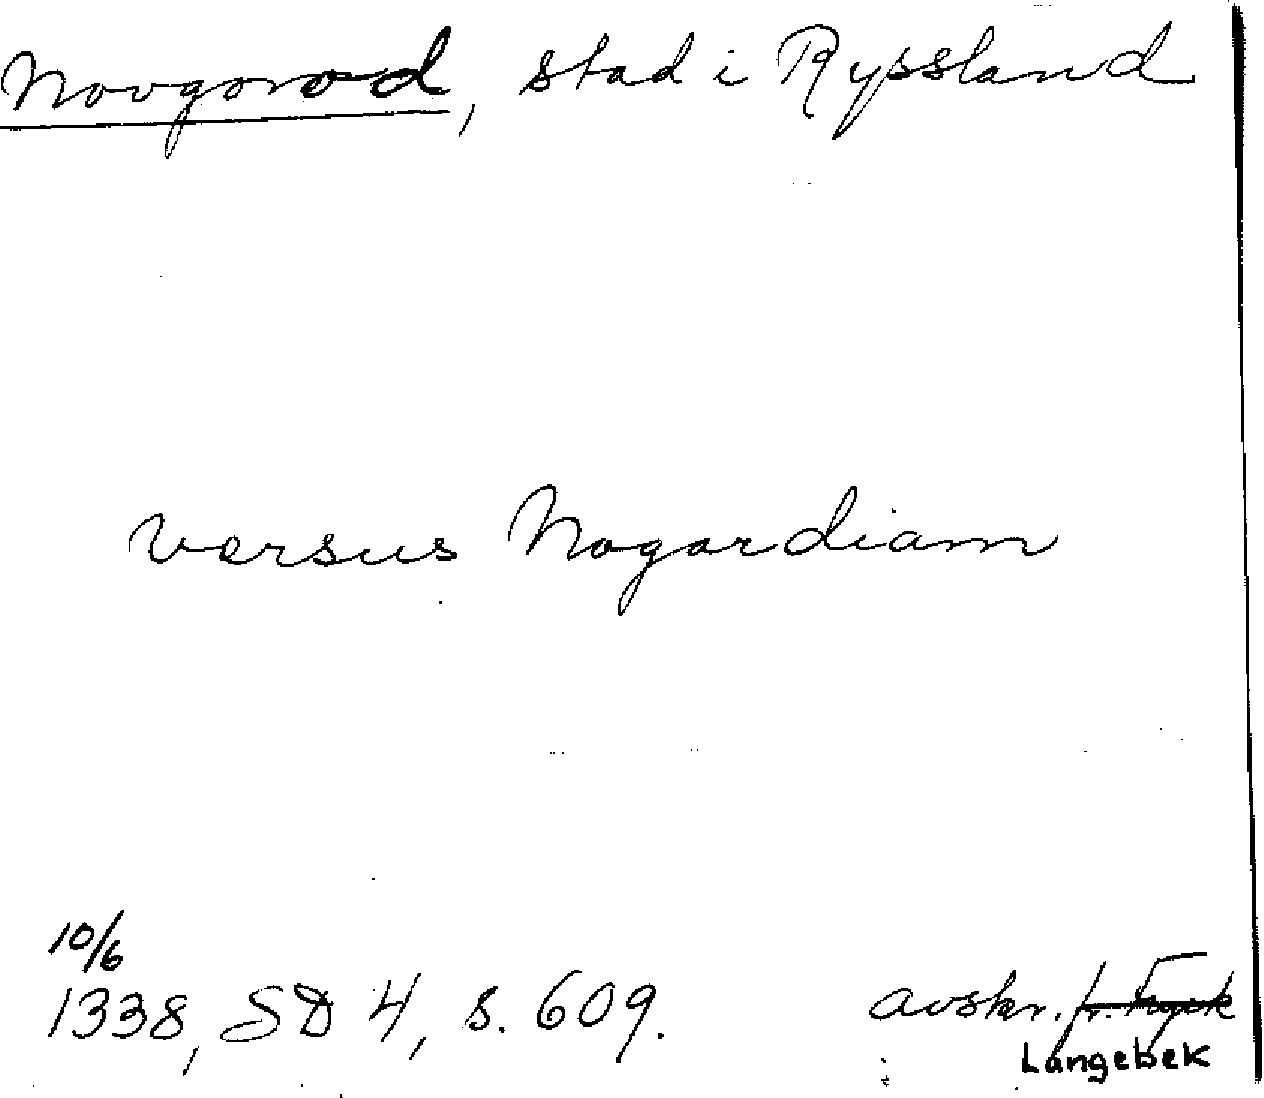 Novgorod, stad i Ryssland
versus Nogardiam
10/6
1338, SD 4, s. 609.
avskr. fr. Tryck
Langebek